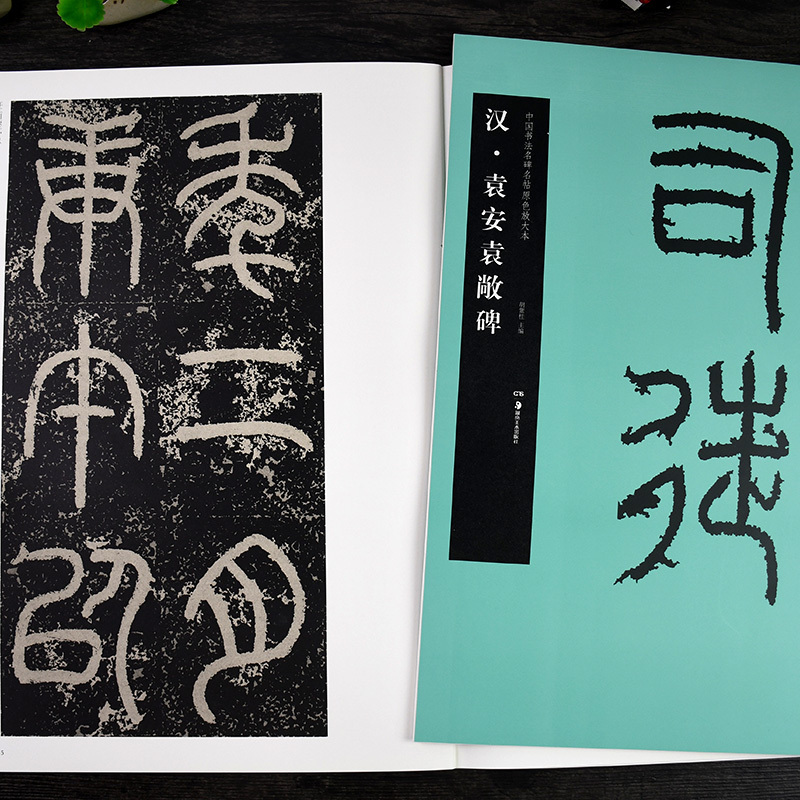 年二月
庚午以
司徒
中国书法名碑名帖原色放大本
汉·袁安袁敞碑
胡紫桂 主编
湖南美术出版社
5